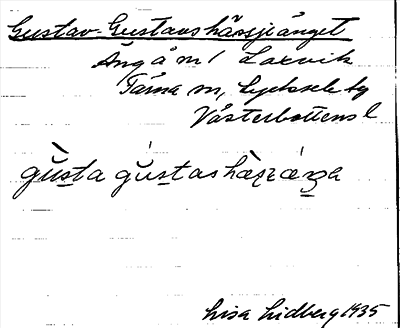 Gustav-Gustavs hässjeänget
Äng å n/ Laxvik
Tärna sn, Lycksele tg
Västerbottens l
gùsta gústashäṣ̌ɛäŋa
Lisa Lidberg 1935